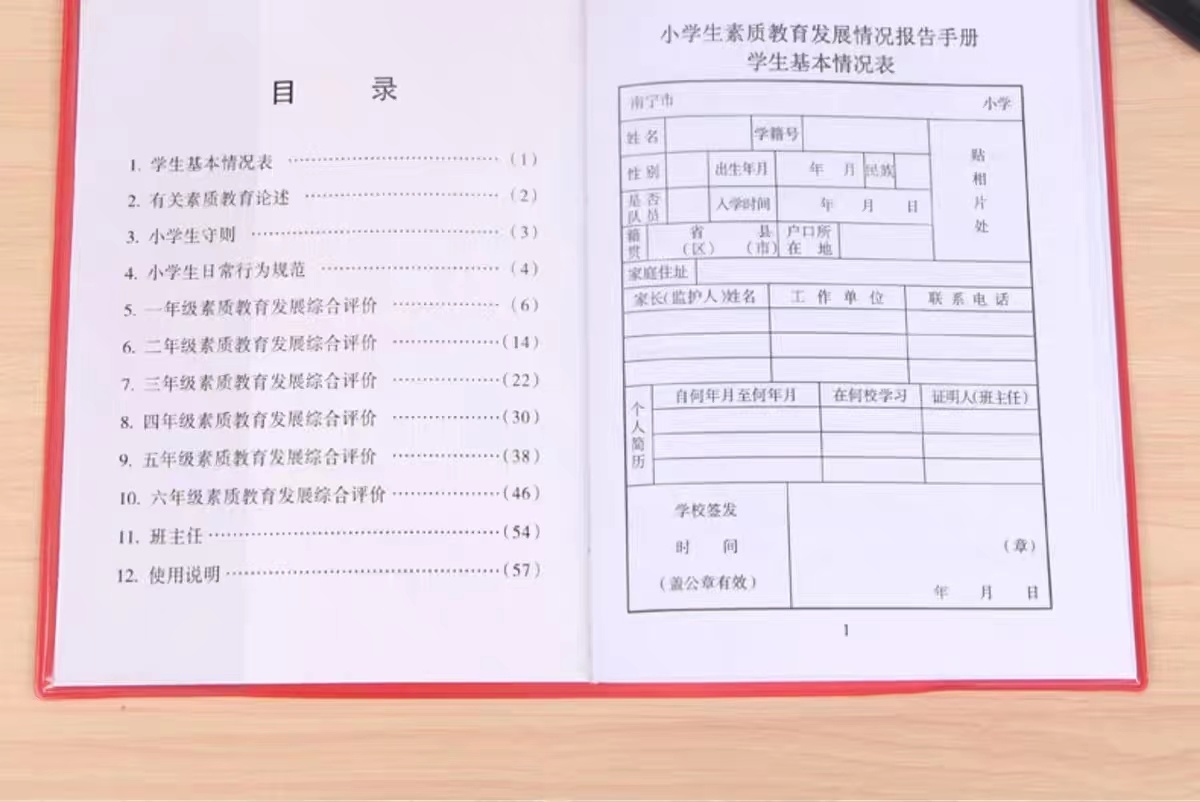 目 录
1. 学生基本情况表 ……………………………（1）
2. 有关素质教育论述 …………………………（2）
3. 小学生守则 …………………………………（3）
4. 小学生日常行为规范 ………………………（4）
5. 一年级素质教育发展综合评价 ……………（6）
6. 二年级素质教育发展综合评价 ……………（14）
7. 三年级素质教育发展综合评价 ……………（22）
8. 四年级素质教育发展综合评价 ……………（30）
9. 五年级素质教育发展综合评价 ……………（38）
10. 六年级素质教育发展综合评价……………（46）
11. 班主任………………………………………（54）
12. 使用说明……………………………………（57）
小学生素质教育发展情况报告手册
学生基本情况表
南宁市 小学
姓 名 学籍号
贴相片处
性 别 出生年月 年 月 民族
是否队员 入学时间 年 月 日
籍贯 省（区） 县（市） 户口所在地
家庭住址
家长（监护人）姓名 工 作 单 位 联 系 电 话
个人简历 自何年月至何年月 在何校学习 证明人（班主任）
学校签发
时 间 （章）
（盖公章有效） 年 月 日
1